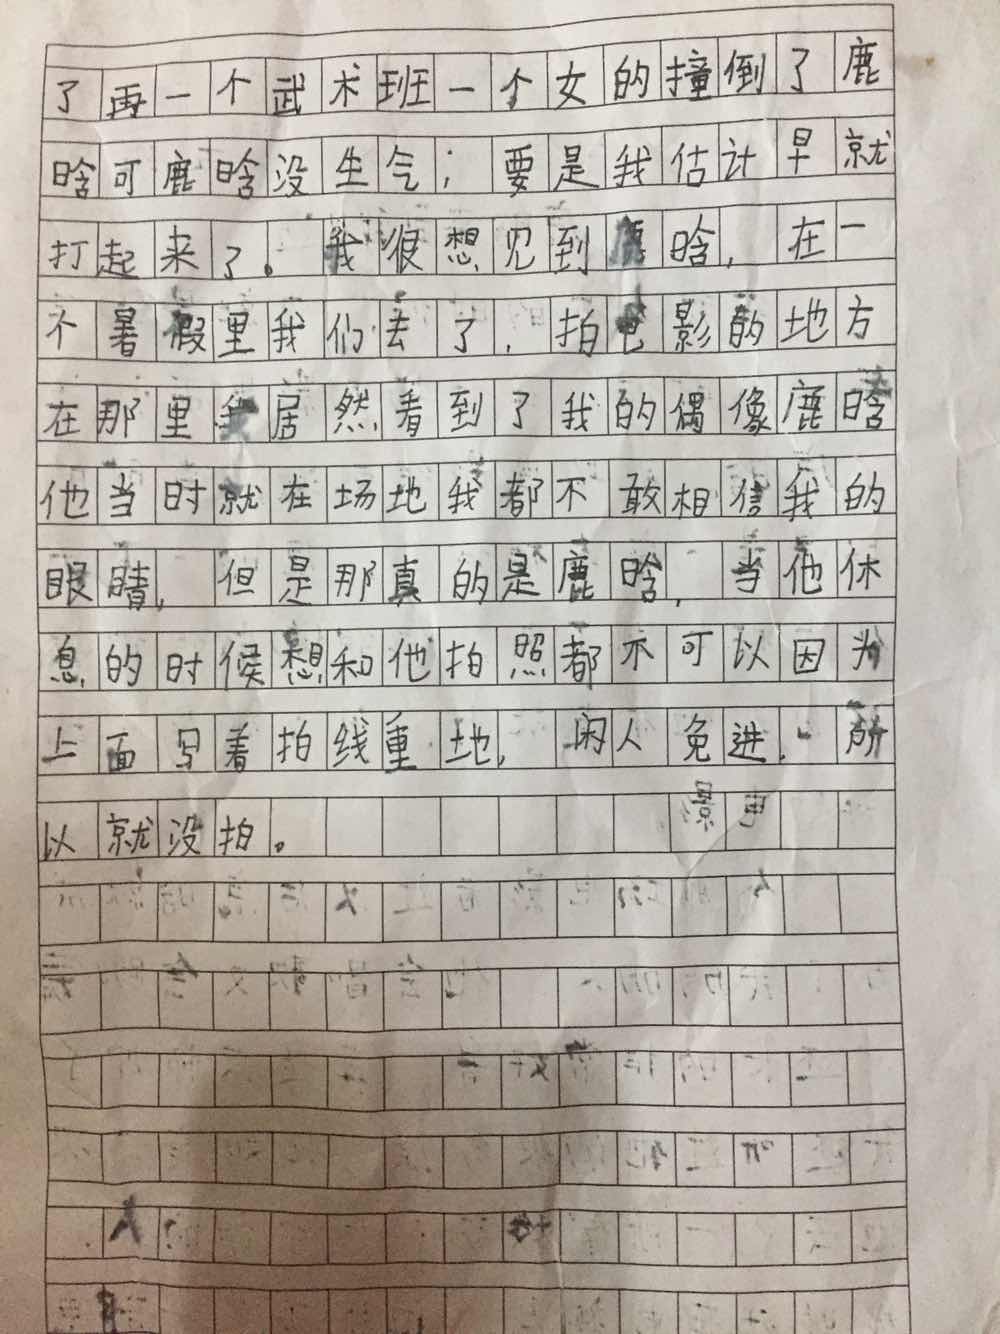 了再一个武术班一个女的撞倒了鹿
晗可鹿晗没生气；要是我估计早就
打起来了。我很想见到鹿晗，在一
个暑假里我们去了，拍电影的地方
在那里我居然看到了我的偶像鹿晗
他当时就在场地我都不敢相信我的
眼睛，但是那真的是鹿晗，当他休
息的时候想和他拍照都不可以因为
上面写着拍线重地，闲人免进，所
以就没拍。